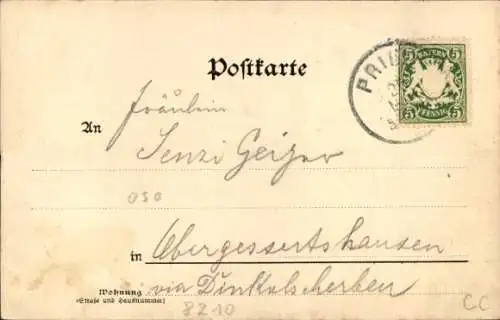 5 BAYERN 5
PRIE
Postkarte
5 PFENNIG 5
Fräulein
An
Senzi Geiger
050
in Obergessertshausen
Wohnung
via Dinkelscherben
(Straße und Hausnummer)
8210
CC